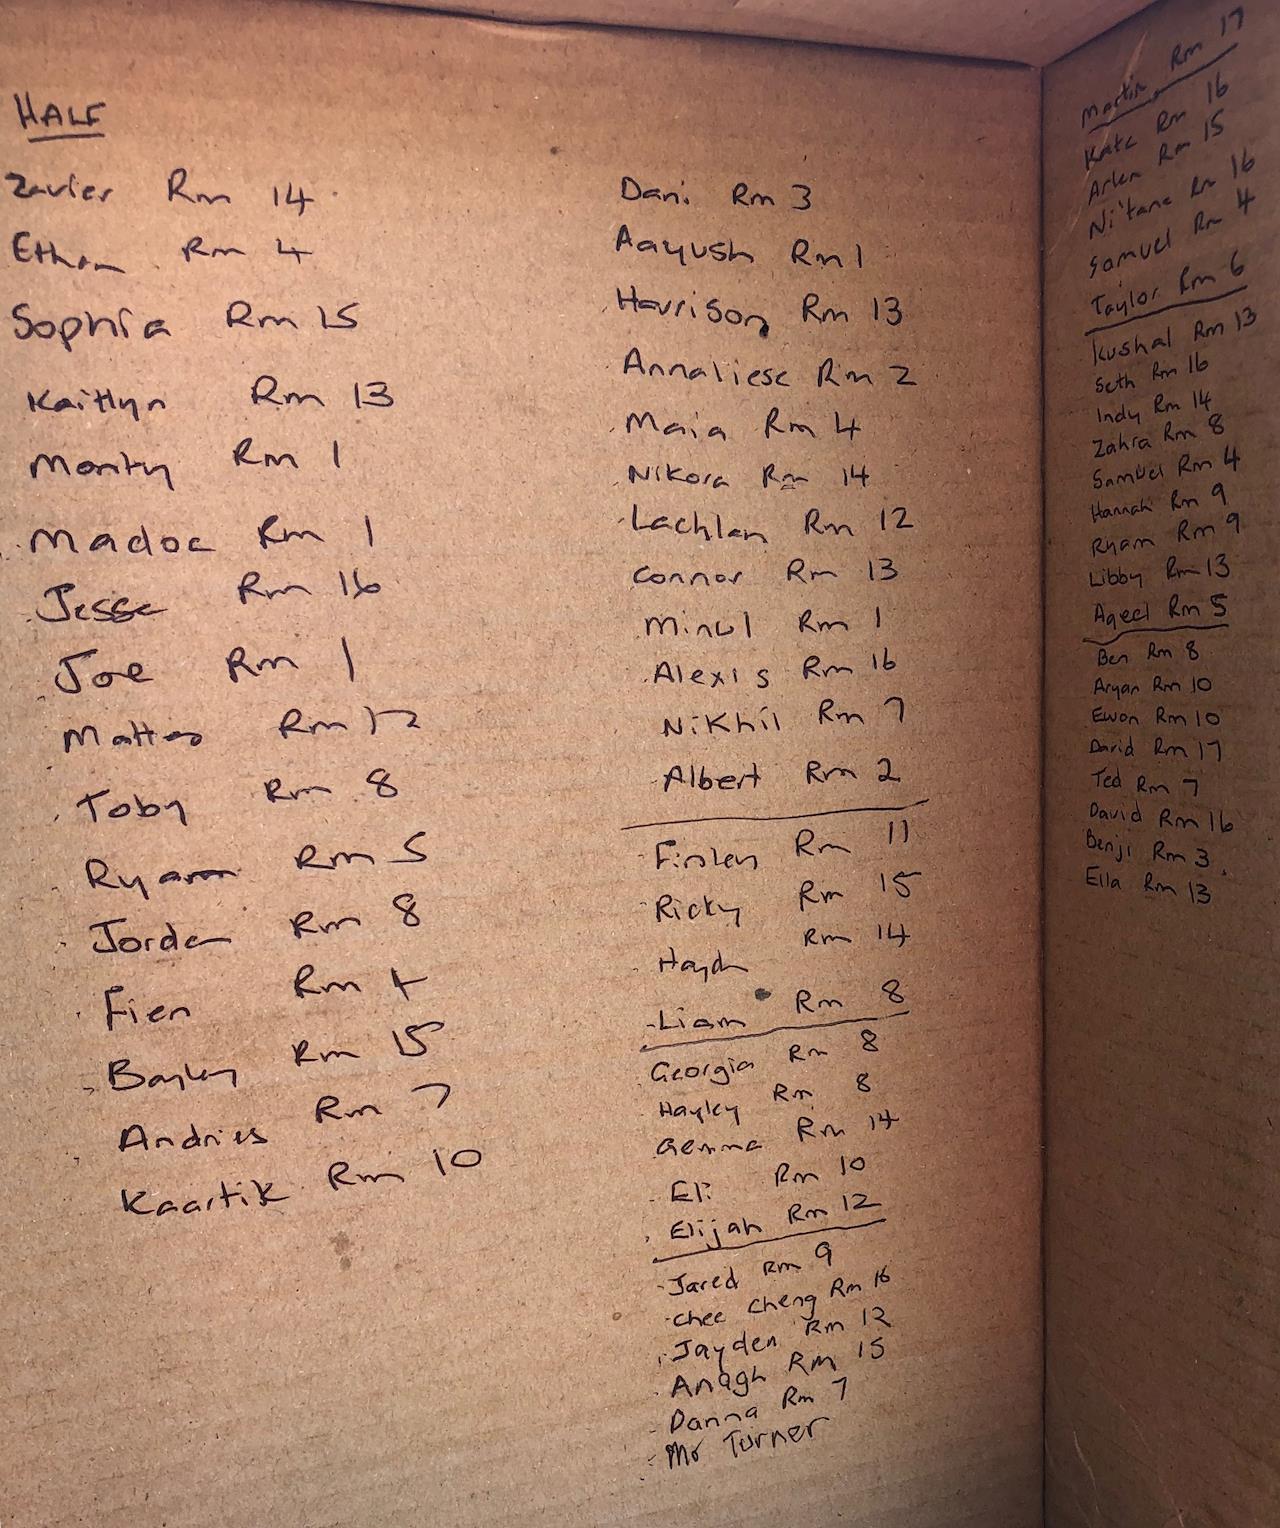 HALF
Zavier Rm 14
Ethan Rm 4
Sophia Rm 15
Kaitlyn Rm 13
Monty Rm 1
Madoc Rm 1
Jesse Rm 16
Joe Rm 1
Matteo Rm 12
Toby Rm 8
Ryan Rm 5
Jordan Rm 8
Fien Rm 4
Bayley Rm 15
Andries Rm 7
Kaartik Rm 10
Dani Rm 3
Aayush Rm 1
Harrison Rm 13
Annaliese Rm 2
Maia Rm 4
Nikora Rm 14
Lachlan Rm 12
Connor Rm 13
Minul Rm 1
Alexis Rm 16
Nikhil Rm 7
Albert Rm 2
Finley Rm 11
Ricky Rm 15
Haydn Rm 14
Liam Rm 8
Georgia Rm 8
Hayley Rm 8
Gemma Rm 14
Eli Rm 10
Elijah Rm 12
Jared Rm 9
Chee Cheng Rm 16
Jayden Rm 12
Anagh Rm 15
Danna Rm 7
Mr Turner
Martin Rm 17
Kate Rm 16
Arlen Rm 15
Ni'tana Rm 16
Samuel Rm 4
Taylor Rm 6
Kushal Rm 13
Seth Rm 16
Indy Rm 14
Zahra Rm 8
Samuel Rm 4
Hannah Rm 9
Ryan Rm 9
Libby Rm 13
Aqeel Rm 5
Ben Rm 8
Aryan Rm 10
Ewon Rm 10
David Rm 17
Ted Rm 7
David Rm 16
Benji Rm 3
Ella Rm 13